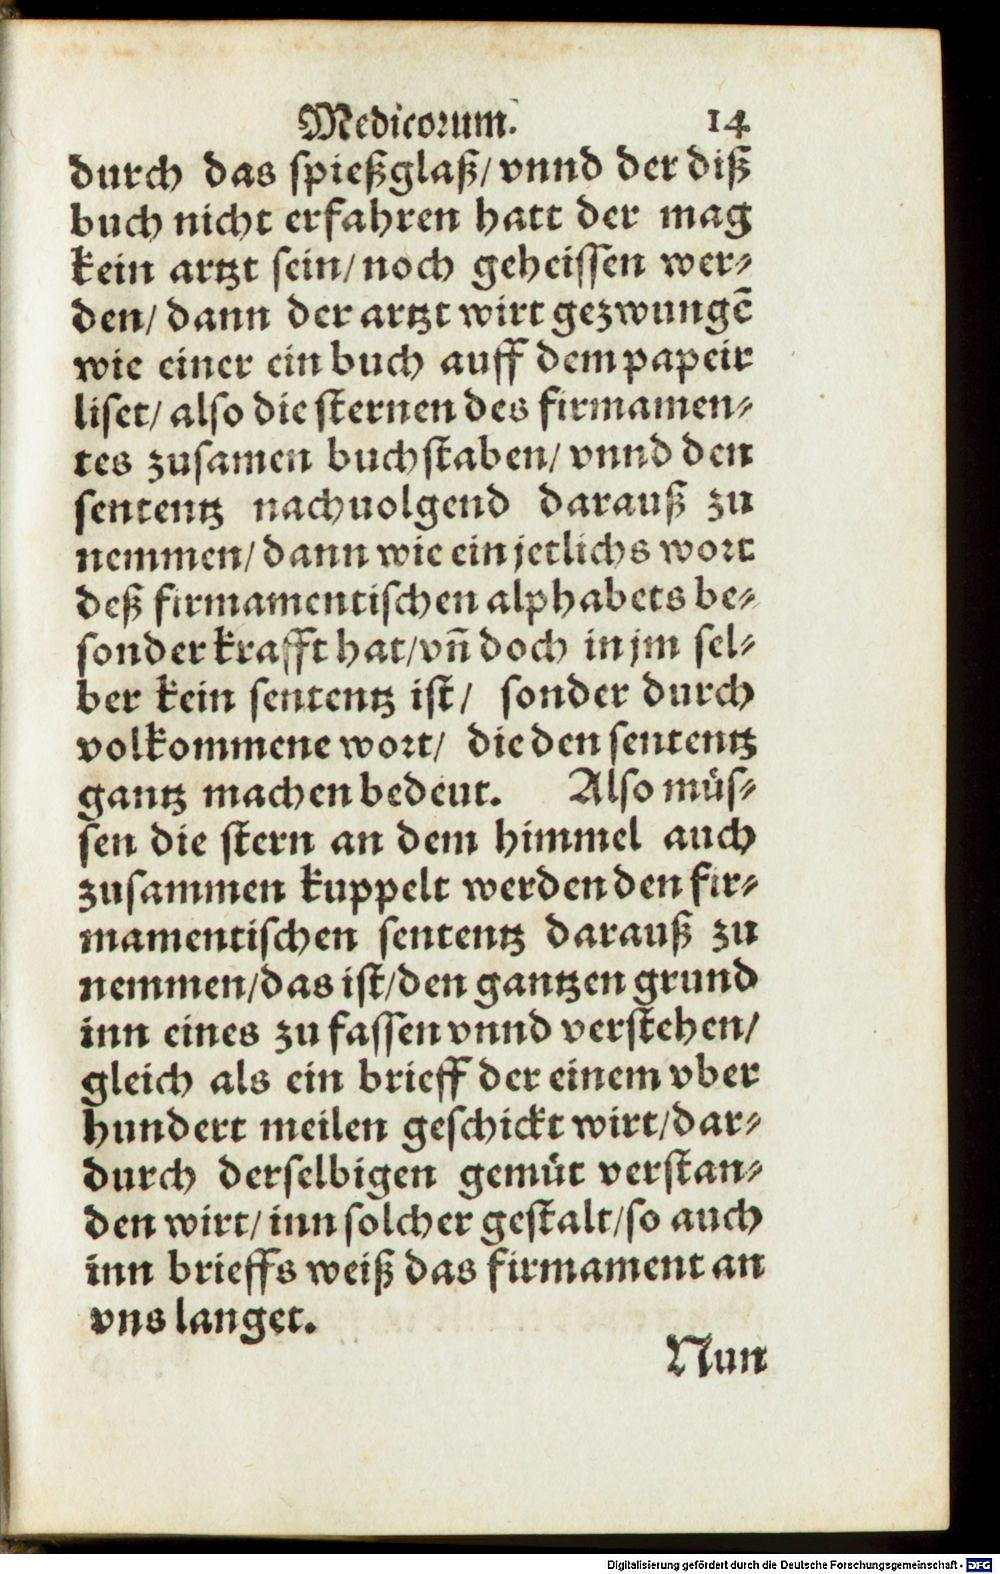 Medicorum. 14
durch das spießglaß/ vnnd der diß
buch nicht erfahren hatt der mag
kein artzt sein/ noch geheissen wer⸗
den/ dann der artzt wirt gezwungē
wie einer ein buch auff dem papeir
liset/ also die sternen des firmamen⸗
tes zusamen buchstaben/ vnnd den
sententz nachuolgend darauß zu
nemmen/ dann wie ein jetlichs wort
deß firmamentischen alphabets be⸗
sonder krafft hat/ vñ doch in jm sel⸗
ber kein sententz ist/ sonder durch
volkommene wort/ die den sententz
gantz machen bedeut. Also müs⸗
sen die stern an dem himmel auch
zusammen kuppelt werden den fir⸗
mamentischen sententz darauß zu
nemmen/ das ist/ den gantzen grund
inn eines zu fassen vnnd verstehen/
gleich als ein brieff der einem vber
hundert meilen geschickt wirt/ dar⸗
durch derselbigen gemüt verstan⸗
den wirt/ inn solcher gestalt/ so auch
inn brieffs weiß das firmament an
vns langet.
Nun
Digitalisierung gefördert durch die Deutsche Forschungsgemeinschaft - DFG